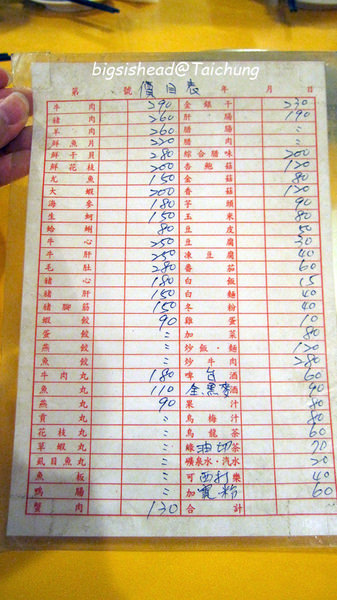 bigsishead@Taichung
第 號 價目表 年 月 日
牛肉 290 金銀干 230
豬肉 260 肝腸 190
羊肉 260 腊腸 〃
鮮魚片 220 腊肉 〃
鮮干貝 280 綜合腊味 200
鮮花枝 200 杏鮑菇 120
尤魚 150 金菇 80
大蝦 200 香菇 120
海參 180 芋頭 90
生蚵 150 玉米 80
蛤蜊 80 豆皮 50
牛心 250 豆腐 30
牛肝 250 凍豆腐 40
毛肚 280 番茄 60
豬心 180 白飯 15
豬肝 150 白麵 40
豬腳筋 150 冬粉 40
蝦餃 90 雞蛋 10
蛋餃 〃 加菜 80
燕餃 〃 炒飯·麵 120
魚餃 〃 炒牛肉 280
牛肉丸 180 啤台酒 60
魚丸 110 金黑麥酒 90
燕丸 90 果汁 80
貢丸 〃 烏梅汁 80
花枝丸 〃 烏龍茶 60
草蝦丸 〃 綠油切茶 70
虱目魚丸 〃 礦泉水·汽水 20
魚板 〃 可西打樂 40
鴨腸 〃 加寬粉 60
蟹肉 130 合計